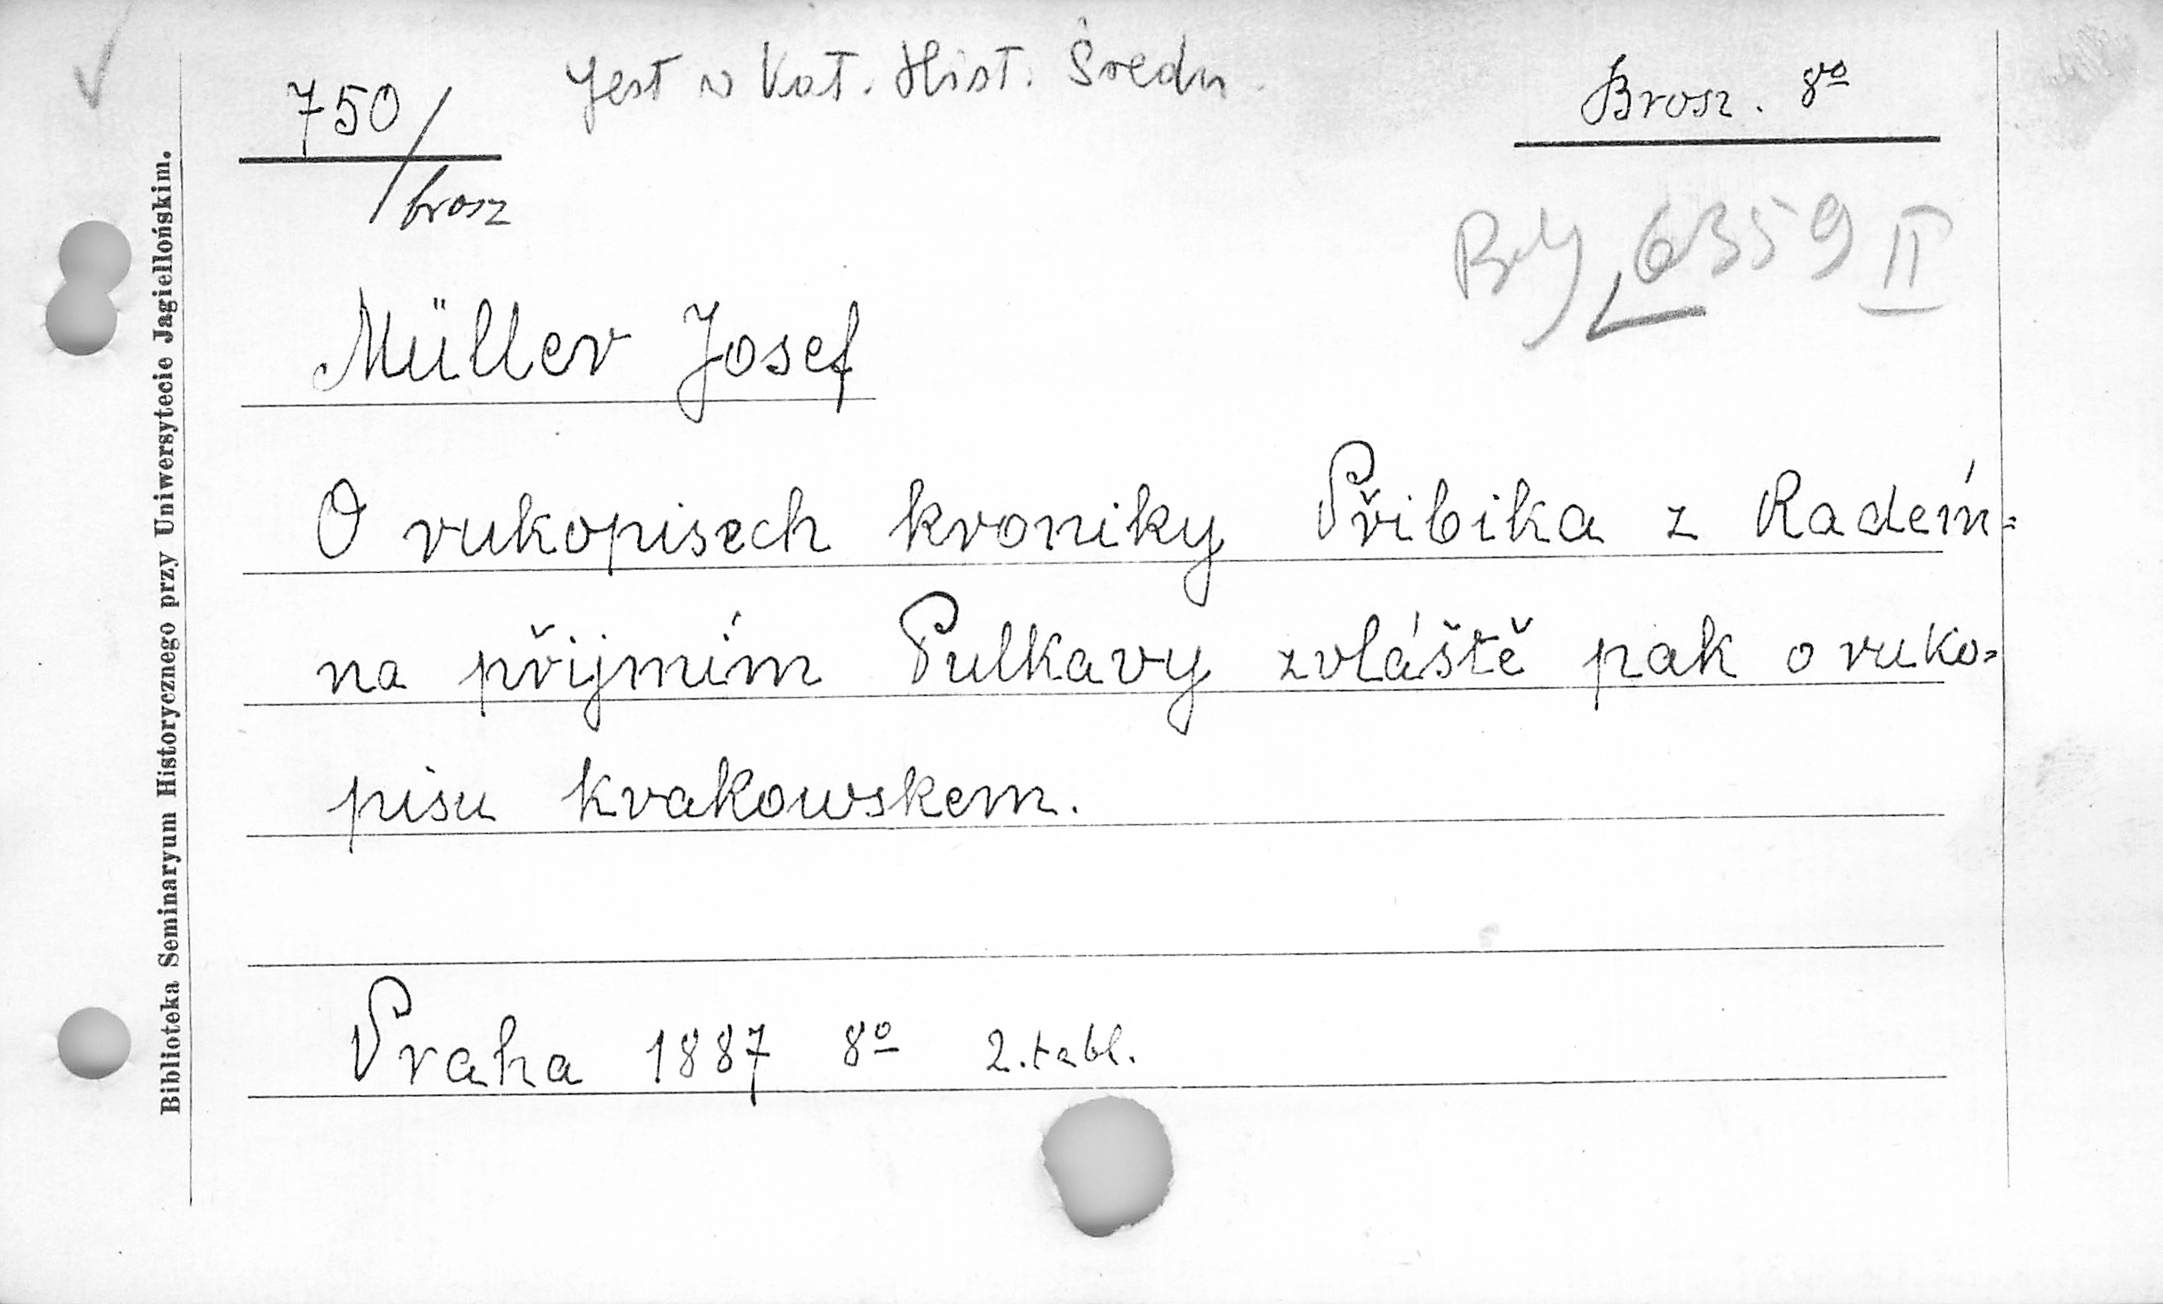 750/brosz
Jest w Kat. Hist. Średn.
Brosz. 8º
6359 II
Müller Josef
O rukopisech kroniky Přibika z Radeín=
na přijmím Pulkavy zvláště pak o ruko=
pisu krakowskem.
Praha 1887 8º 2.tabl.
Biblioteka Seminaryum Historycznego przy Uniwersytecie Jagiellońskim.